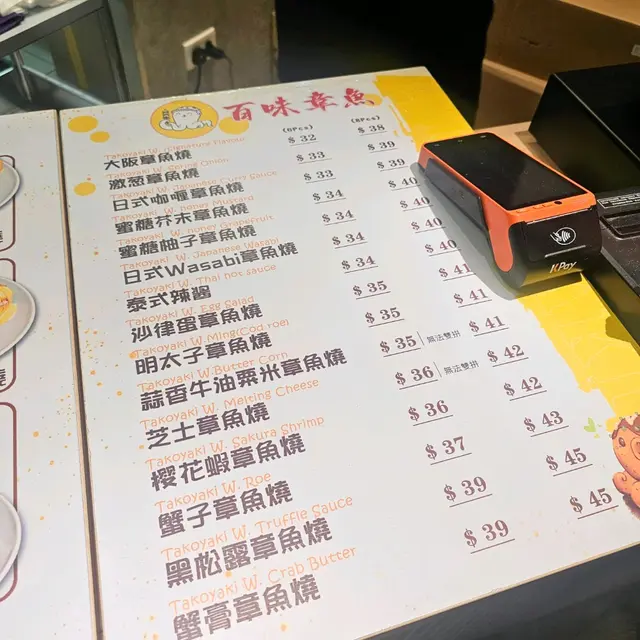 百味章魚
(6Pcs) (8Pcs)
Takoyaki W. Signature Flavour
大阪章魚燒 $32 $38
Takoyaki W. Spring Onion
激葱章魚燒 $33 $39
Takoyaki W. Japanese Curry Sauce
日式咖喱章魚燒 $33 $39
Takoyaki W. honey Mustard
蜜糖芥末章魚燒 $34 $40
Takoyaki W. honey Grapefruit
蜜糖柚子章魚燒 $34 $40
Takoyaki W. Japanese Wasabi
日式Wasabi章魚燒 $34 $40
Takoyaki W. Thai hot sauce
泰式辣醬 $34
Takoyaki W. Egg Salad
沙律蛋章魚燒 $35 $41
Takoyaki W. Ming(Cod roe)
明太子章魚燒 $35
Takoyaki W.Butter Corn
蒜香牛油粟米章魚燒 $35 無法雙拼 $41
Takoyaki W. Melting Cheese
芝士章魚燒 $36 無法雙拼 $42
Takoyaki W. Sakura Shrimp
櫻花蝦章魚燒 $36 $42
Takoyaki W. Roe
蟹子章魚燒 $37 $43
Takoyaki W. Truffle Sauce
黑松露章魚燒 $39 $45
Takoyaki W. Crab Butter
蟹膏章魚燒 $39 $45
KPay